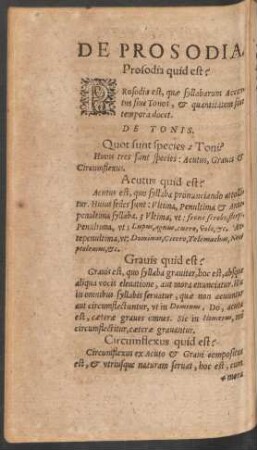 DE PROSODIA.
Prosodia quid est?
PRosodia est, quæ syllabarum Accen-
tus siue Tonos, & quantitatem siue
tempora docet.
DE TONIS.
Quot sunt species Toni?
Huius tres sunt species: Acutus, Grauis &
Circumflexus.
Acutus quid est?
Acutus est, quo syllaba pronunciando attolli-
tur. Huius sedes sunt: Vltima, Penultima & Ante-
penultima syllaba. Vltima, vt:
Penultima, vt: Lupus, agnus, Volo, &c.
tepenultima, vt: Dominus, Cicero, Telemachus, Neo-
ptolemus, &c.
Grauis quid est?
Grauis est, quo syllaba grauiter, hoc est, absque
aliqua vocis eleuatione, aut mora enunciatur.
in omnibus syllabis seruatur, quæ non acuuntur
aut circumflectuntur, vt in Dominus, Do, acuta
est, cæteræ graues omnes. Sic in
circumflectitur, cæteræ grauantur.
Circumflexus quid est?
Circumflexus ex Acuto & Graui compositus
est, & vtriusque naturam seruat, hoc est, cum
mora